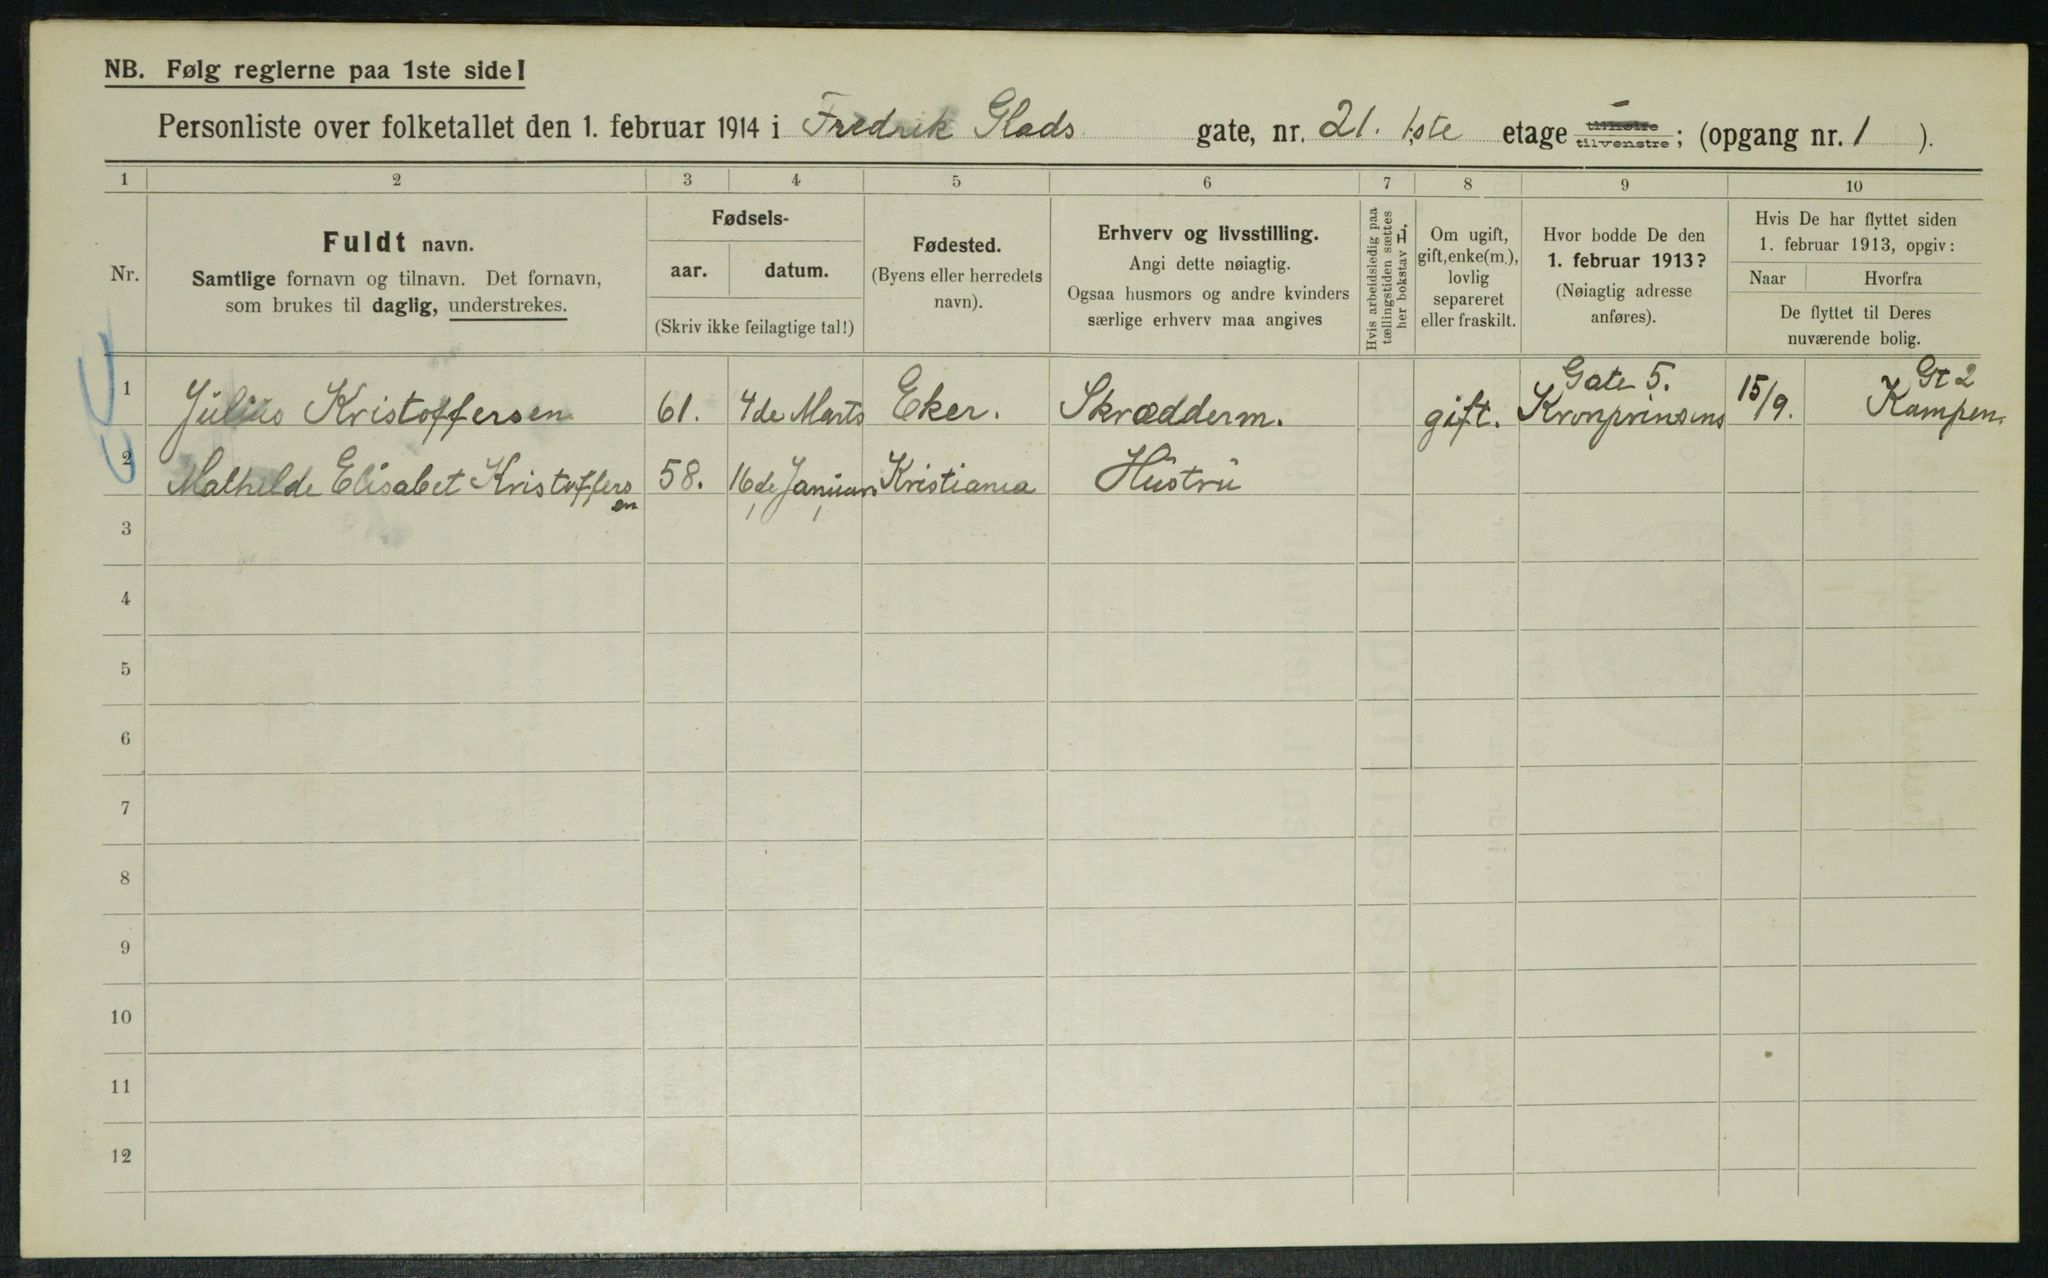 NB. Følg reglerne paa 1ste side!
Personliste over folketallet den 1. februar 1914 i Fredrik Glads gate, nr. 21. 1ste etage tilhøire tilvenstre; (opgang nr. 1 ).
1 2 3 4 5 6 7 8 9 10
Nr.
Fuldt navn.
Samtlige fornavn og tilnavn. Det fornavn,
som brukes til daglig, understrekes.
Fødsels-
aar. datum.
(Skriv ikke feilagtige tal!)
Fødested.
(Byens eller herredets
navn).
Erhverv og livsstilling.
Angi dette nøiagtig.
Ogsaa husmors og andre kvinders
særlige erhverv maa angives
Hvis arbeidsledig paa
tællingstiden sættes
her bokstav H.
Om ugift,
gift, enke(m.),
lovlig
separeret
eller fraskilt.
Hvor bodde De den
1. februar 1913?
(Nøiagtig adresse
anføres).
Hvis De har flyttet siden
1. februar 1913, opgiv:
Naar Hvorfra
De flyttet til Deres
nuværende bolig.
Gate 5. Gt 2
1 Julius Kristoffersen 61. 4de Marts Eker. Skrædderm. gift. Kronprinsens 15/9. Kampen
2 Mathilde Elisabet Kristoffers 58. 16de Januar Kristiania Hustru
en
3
4
5
6
7
8
9
10
11
12